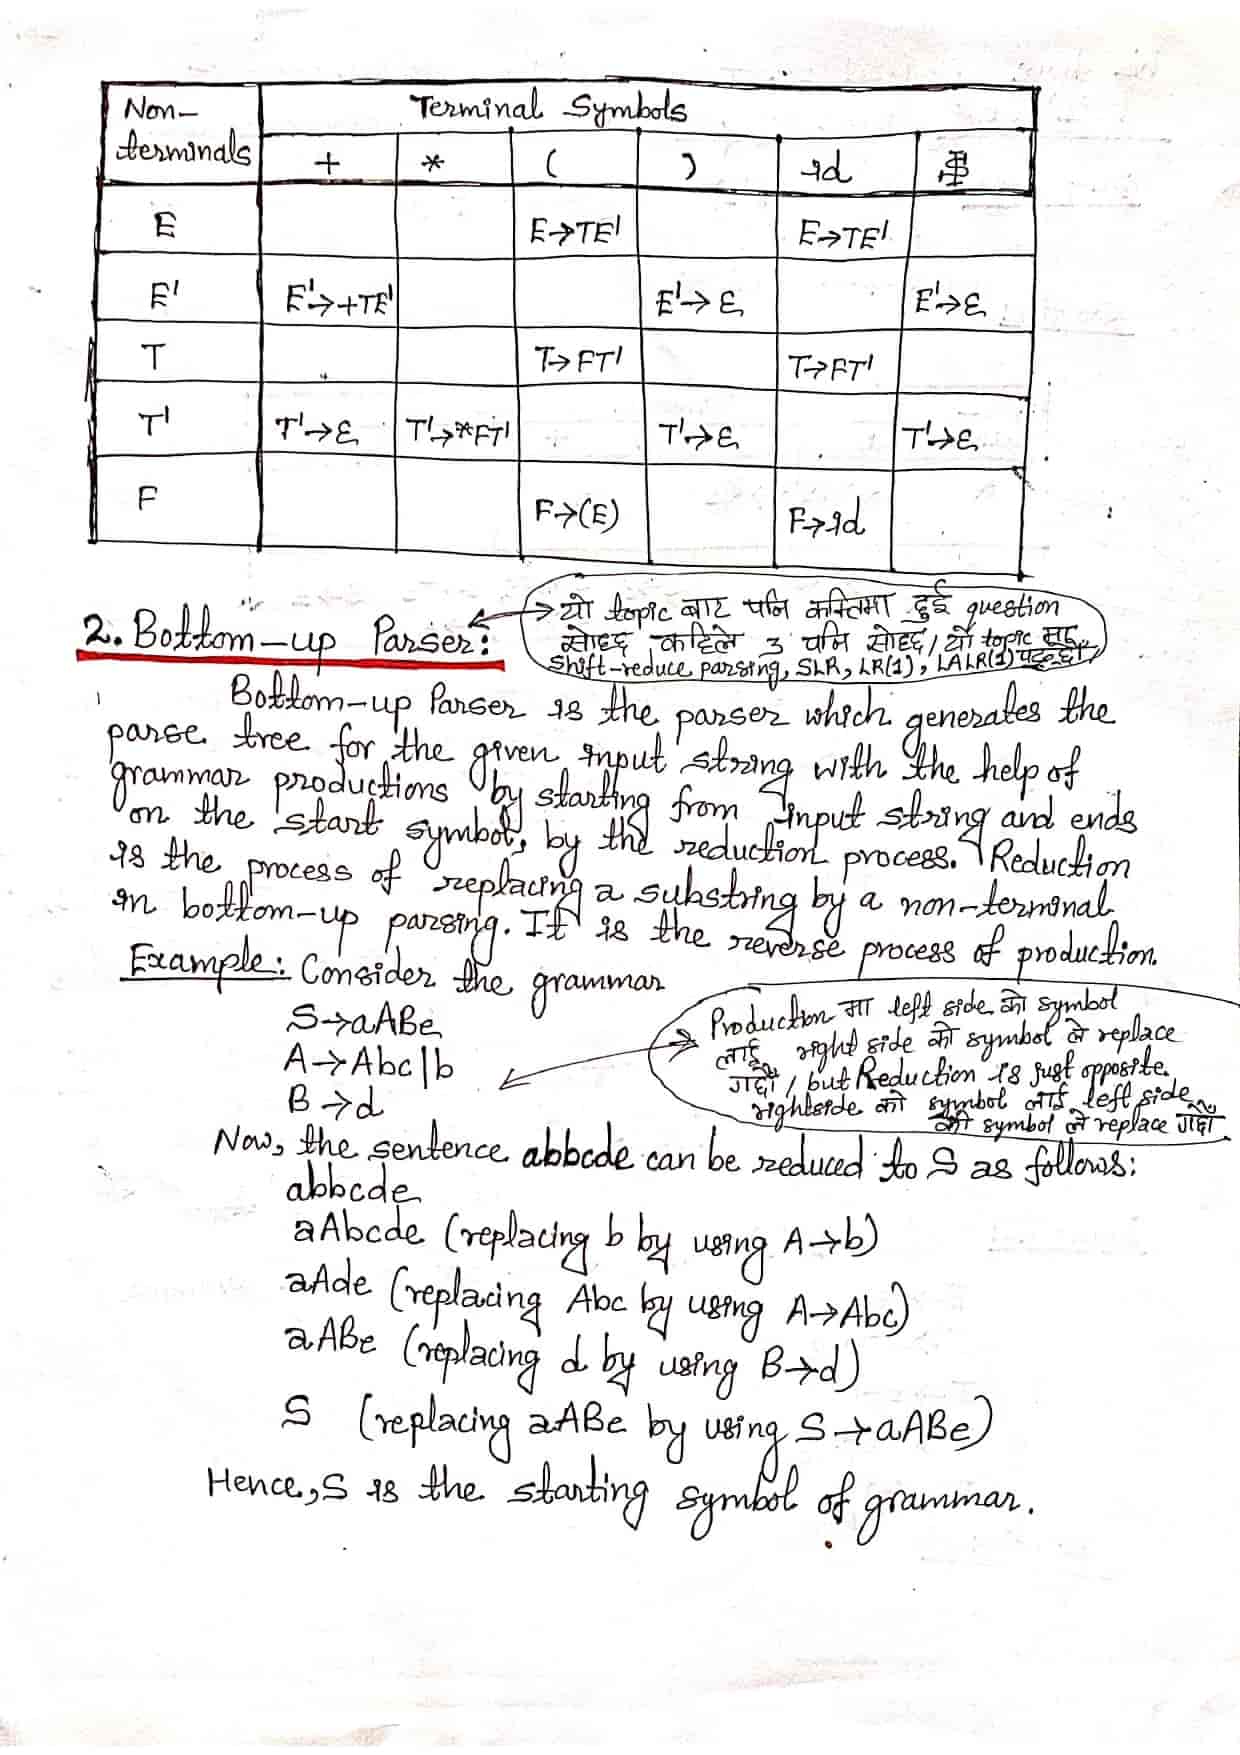 Non-terminals | Terminal Symbols
+ | * | ( | ) | id | $
E | | | E→TE' | | E→TE' |
E' | E'→+TE' | | | E'→ε | | E'→ε
T | | | T→FT' | | T→FT' |
T' | T'→ε | T'→*FT' | | T'→ε | | T'→ε
F | | | F→(E) | | F→id |
2. Bottom-up Parser:
यो topic बाट पनि कम्तिमा दुई question
सोध्छ कहिले 3 पनि सोध्छ/ यो topic मा
Shift-reduce parsing, SLR, LR(1), LALR(1) पर्दछ
Bottom-up Parser is the parser which generates the
parse tree for the given input string with the help of
grammar productions by starting from input string and ends
on the start symbol, by the reduction process. Reduction
is the process of replacing a substring by a non-terminal
in bottom-up parsing. It is the reverse process of production.
Example: Consider the grammar
S→aABe
A→Abc|b
B→d
Production मा left side को symbol
लाई right side को symbol ले replace
गर्दा/ but Reduction is just opposite.
rightside को symbol लाई left side
को symbol ले replace गर्दा
Now, the sentence abbcde can be reduced to S as follows:
abbcde
aAbcde (replacing b by using A→b)
aAde (replacing Abc by using A→Abc)
aABe (replacing d by using B→d)
S (replacing aABe by using S→aABe)
Hence, S is the starting symbol of grammar.